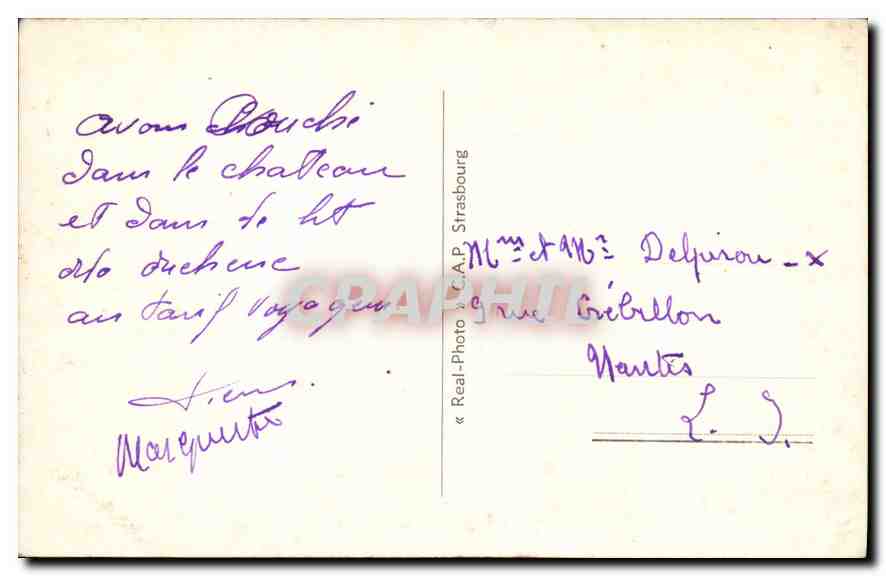 avons Couché
dans le chateau
et dans le lit
de la duchesse
au tarif voyageur
Pierre.
Marguerite
« Real-Photo » C.A.P. Strasbourg
CPAPHIL
Mme et Mr Delpirou - x
9 rue Crébillon
Nantes
L. I.